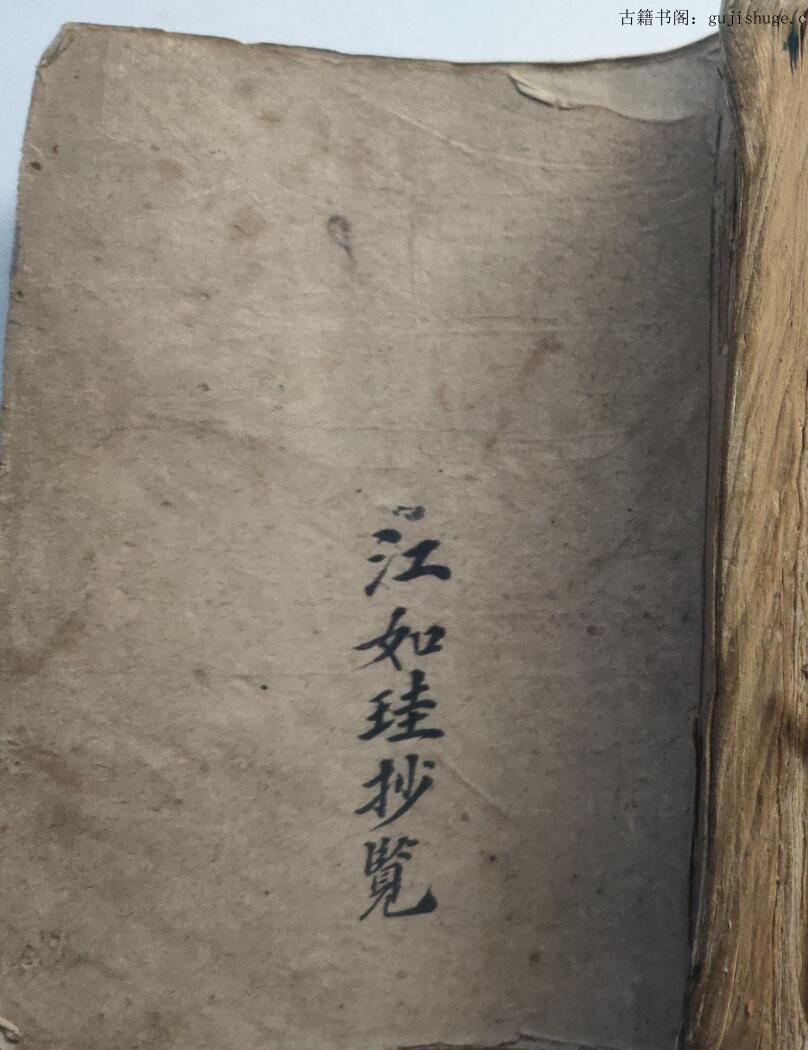 古籍书阁：gujishuge.c
江如珪抄覽